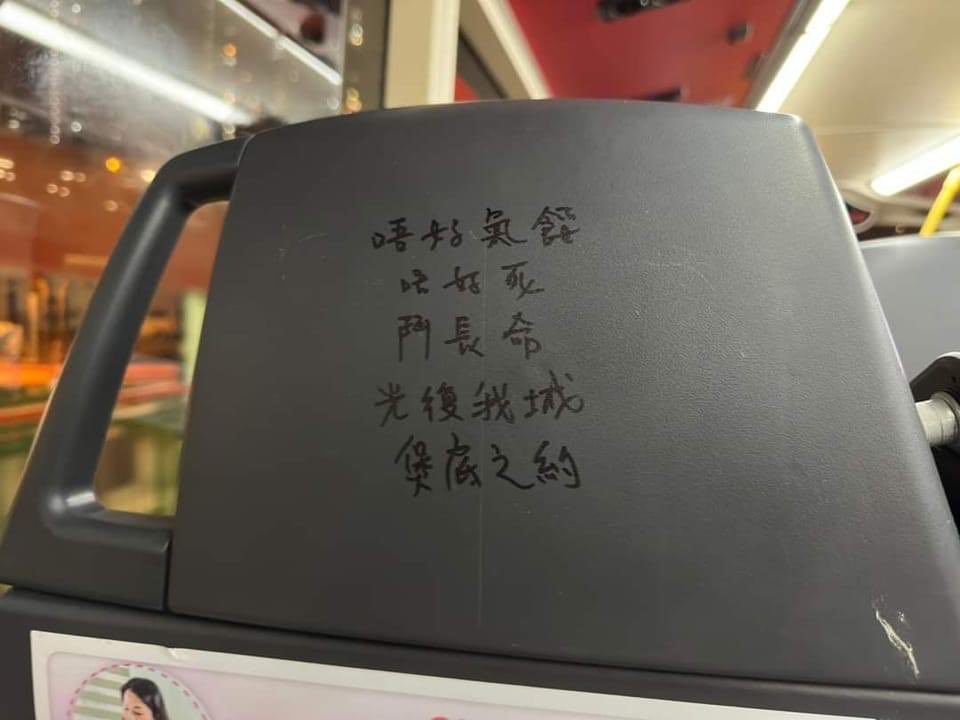 唔好氣餒
唔好死
鬥長命
光復我城
煲底之約